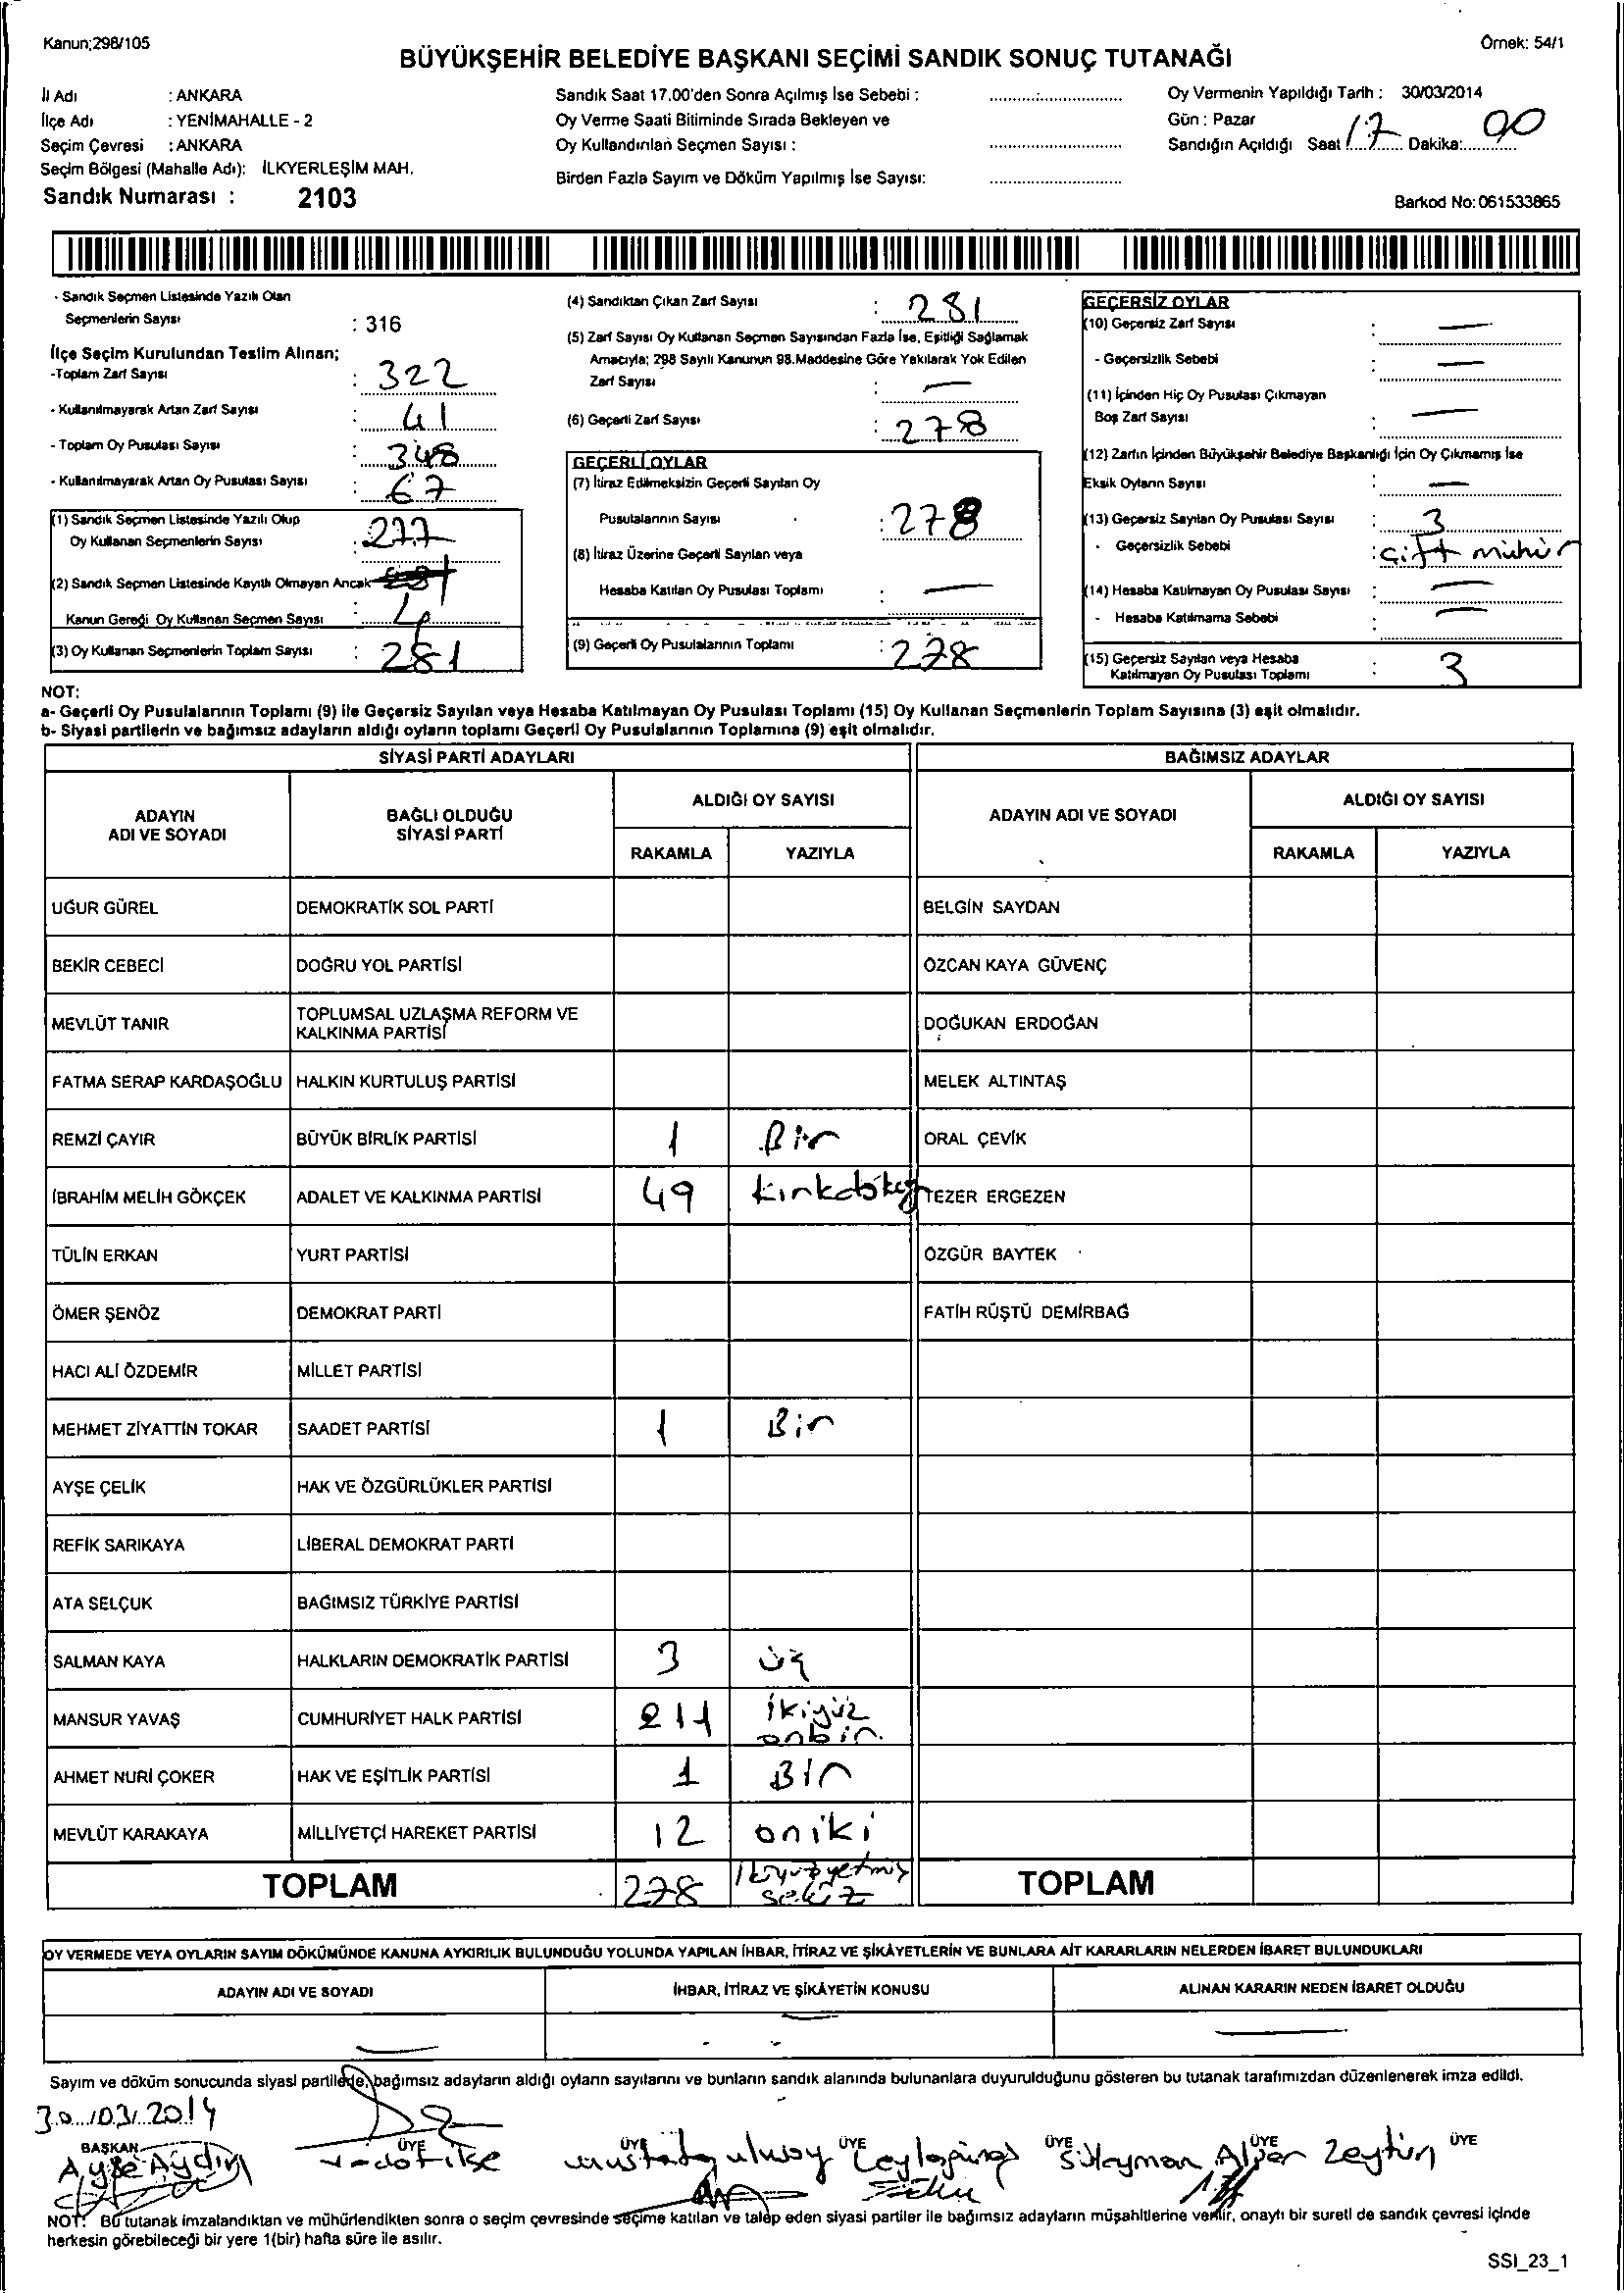 Kanun;298/105
Örnek: 54/1
BÜYÜKŞEHİR BELEDİYE BAŞKANI SEÇİMİ SANDIK SONUÇ TUTANAĞI
İl Adı : ANKARA
İlçe Adı : YENİMAHALLE - 2
Seçim Çevresi : ANKARA
Seçim Bölgesi (Mahalle Adı): İLKYERLEŞİM MAH.
Sandık Numarası : 2103
Sandık Saat 17.00'den Sonra Açılmış İse Sebebi :
Oy Verme Saati Bitiminde Sırada Bekleyen ve
Oy Kullandırılan Seçmen Sayısı :
Birden Fazla Sayım ve Döküm Yapılmış İse Sayısı:
Oy Vermenin Yapıldığı Tarih : 30/03/2014
Gün : Pazar
Sandığın Açıldığı Saat 17 Dakika: 00
Barkod No: 061533865
- Sandık Seçmen Listesinde Yazılı Olan
Seçmenlerin Sayısı : 316
İlçe Seçim Kurulundan Teslim Alınan;
-Toplam Zarf Sayısı : 322
- Kullanılmayarak Artan Zarf Sayısı : 41
- Toplam Oy Pusulası Sayısı : 348
- Kullanılmayarak Artan Oy Pusulası Sayısı : 67
(1) Sandık Seçmen Listesinde Yazılı Olup
Oy Kullanan Seçmenlerin Sayısı : 277
(2) Sandık Seçmen Listesinde Kayıtlı Olmayan Ancak
Kanun Gereği Oy Kullanan Seçmen Sayısı : 4
(3) Oy Kullanan Seçmenlerin Toplam Sayısı : 281
(4) Sandıktan Çıkan Zarf Sayısı : 281
(5) Zarf Sayısı Oy Kullanan Seçmen Sayısından Fazla İse, Eşitliği Sağlamak
Amacıyla; 298 Sayılı Kanunun 98.Maddesine Göre Yakılarak Yok Edilen
Zarf Sayısı : —
(6) Geçerli Zarf Sayısı : 278
GEÇERLİ OYLAR
(7) İtiraz Edilmeksizin Geçerli Sayılan Oy
Pusulalarının Sayısı : 278
(8) İtiraz Üzerine Geçerli Sayılan veya
Hesaba Katılan Oy Pusulası Toplamı : —
(9) Geçerli Oy Pusulalarının Toplamı : 278
GEÇERSİZ OYLAR
(10) Geçersiz Zarf Sayısı : —
- Geçersizlik Sebebi : —
(11) İçinden Hiç Oy Pusulası Çıkmayan
Boş Zarf Sayısı : —
(12) Zarfın İçinden Büyükşehir Belediye Başkanlığı İçin Oy Çıkmamış İse
Eksik Oyların Sayısı : —
(13) Geçersiz Sayılan Oy Pusulası Sayısı : 3
- Geçersizlik Sebebi : çift mühür
(14) Hesaba Katılmayan Oy Pusulası Sayısı : —
- Hesaba Katılmama Sebebi : —
(15) Geçersiz Sayılan veya Hesaba
Katılmayan Oy Pusulası Toplamı : 3
NOT:
a- Geçerli Oy Pusulalarının Toplamı (9) ile Geçersiz Sayılan veya Hesaba Katılmayan Oy Pusulası Toplamı (15) Oy Kullanan Seçmenlerin Toplam Sayısına (3) eşit olmalıdır.
b- Siyasi partilerin ve bağımsız adayların aldığı oyların toplamı Geçerli Oy Pusulalarının Toplamına (9) eşit olmalıdır.
SİYASİ PARTİ ADAYLARI BAĞIMSIZ ADAYLAR
ADAYIN ADI VE SOYADI BAĞLI OLDUĞU SİYASİ PARTİ ALDIĞI OY SAYISI ADAYIN ADI VE SOYADI ALDIĞI OY SAYISI
RAKAMLA YAZIYLA RAKAMLA YAZIYLA
UĞUR GÜREL DEMOKRATİK SOL PARTİ BELGİN SAYDAN
BEKİR CEBECİ DOĞRU YOL PARTİSİ ÖZCAN KAYA GÜVENÇ
MEVLÜT TANIR TOPLUMSAL UZLAŞMA REFORM VE KALKINMA PARTİSİ DOĞUKAN ERDOĞAN
FATMA SERAP KARDAŞOĞLU HALKIN KURTULUŞ PARTİSİ MELEK ALTINTAŞ
REMZİ ÇAYIR BÜYÜK BİRLİK PARTİSİ 1 Bir ORAL ÇEVİK
İBRAHİM MELİH GÖKÇEK ADALET VE KALKINMA PARTİSİ 49 TEZER ERGEZEN
TÜLİN ERKAN YURT PARTİSİ ÖZGÜR BAYTEK
ÖMER ŞENÖZ DEMOKRAT PARTİ FATİH RÜŞTÜ DEMİRBAĞ
HACI ALİ ÖZDEMİR MİLLET PARTİSİ
MEHMET ZİYATTİN TOKAR SAADET PARTİSİ 1 Bir
AYŞE ÇELİK HAK VE ÖZGÜRLÜKLER PARTİSİ
REFİK SARIKAYA LİBERAL DEMOKRAT PARTİ
ATA SELÇUK BAĞIMSIZ TÜRKİYE PARTİSİ
SALMAN KAYA HALKLARIN DEMOKRATİK PARTİSİ 3 üç
MANSUR YAVAŞ CUMHURİYET HALK PARTİSİ 211 ikiyüz onbir.
AHMET NURİ ÇOKER HAK VE EŞİTLİK PARTİSİ 1 Bir
MEVLÜT KARAKAYA MİLLİYETÇİ HAREKET PARTİSİ 12 oniki
TOPLAM 278 ikiyüzyetmiş sekiz TOPLAM
OY VERMEDE VEYA OYLARIN SAYIM DÖKÜMÜNDE KANUNA AYKIRILIK BULUNDUĞU YOLUNDA YAPILAN İHBAR, İTİRAZ VE ŞİKÂYETLERİN VE BUNLARA AİT KARARLARIN NELERDEN İBARET BULUNDUKLARI
ADAYIN ADI VE SOYADI İHBAR, İTİRAZ VE ŞİKÂYETİN KONUSU ALINAN KARARIN NEDEN İBARET OLDUĞU
Sayım ve döküm sonucunda siyasi partilerle, bağımsız adayların aldığı oyların sayılarını ve bunların sandık alanında bulunanlara duyurulduğunu gösteren bu tutanak tarafımızdan düzenlenerek imza edildi.
30/03/2014
BAŞKAN ÜYE ÜYE ÜYE ÜYE ÜYE ÜYE
Ayşe Aydın Mustafa ulusoy Süleyman Alper Zeytun
NOT: Bu tutanak imzalandıktan ve mühürlendikten sonra o seçim çevresinde seçime katılan ve talep eden siyasi partiler ile bağımsız adayların müşahitlerine verilir, onaylı bir sureti de sandık çevresi içinde
herkesin görebileceği bir yere 1(bir) hafta süre ile asılır.
SSI_23_1